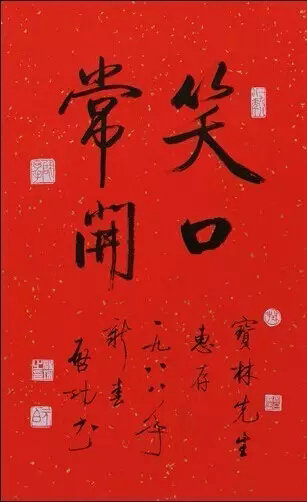 笑口
常開
寶林先生
惠存
一九八八年
新春
啓功書